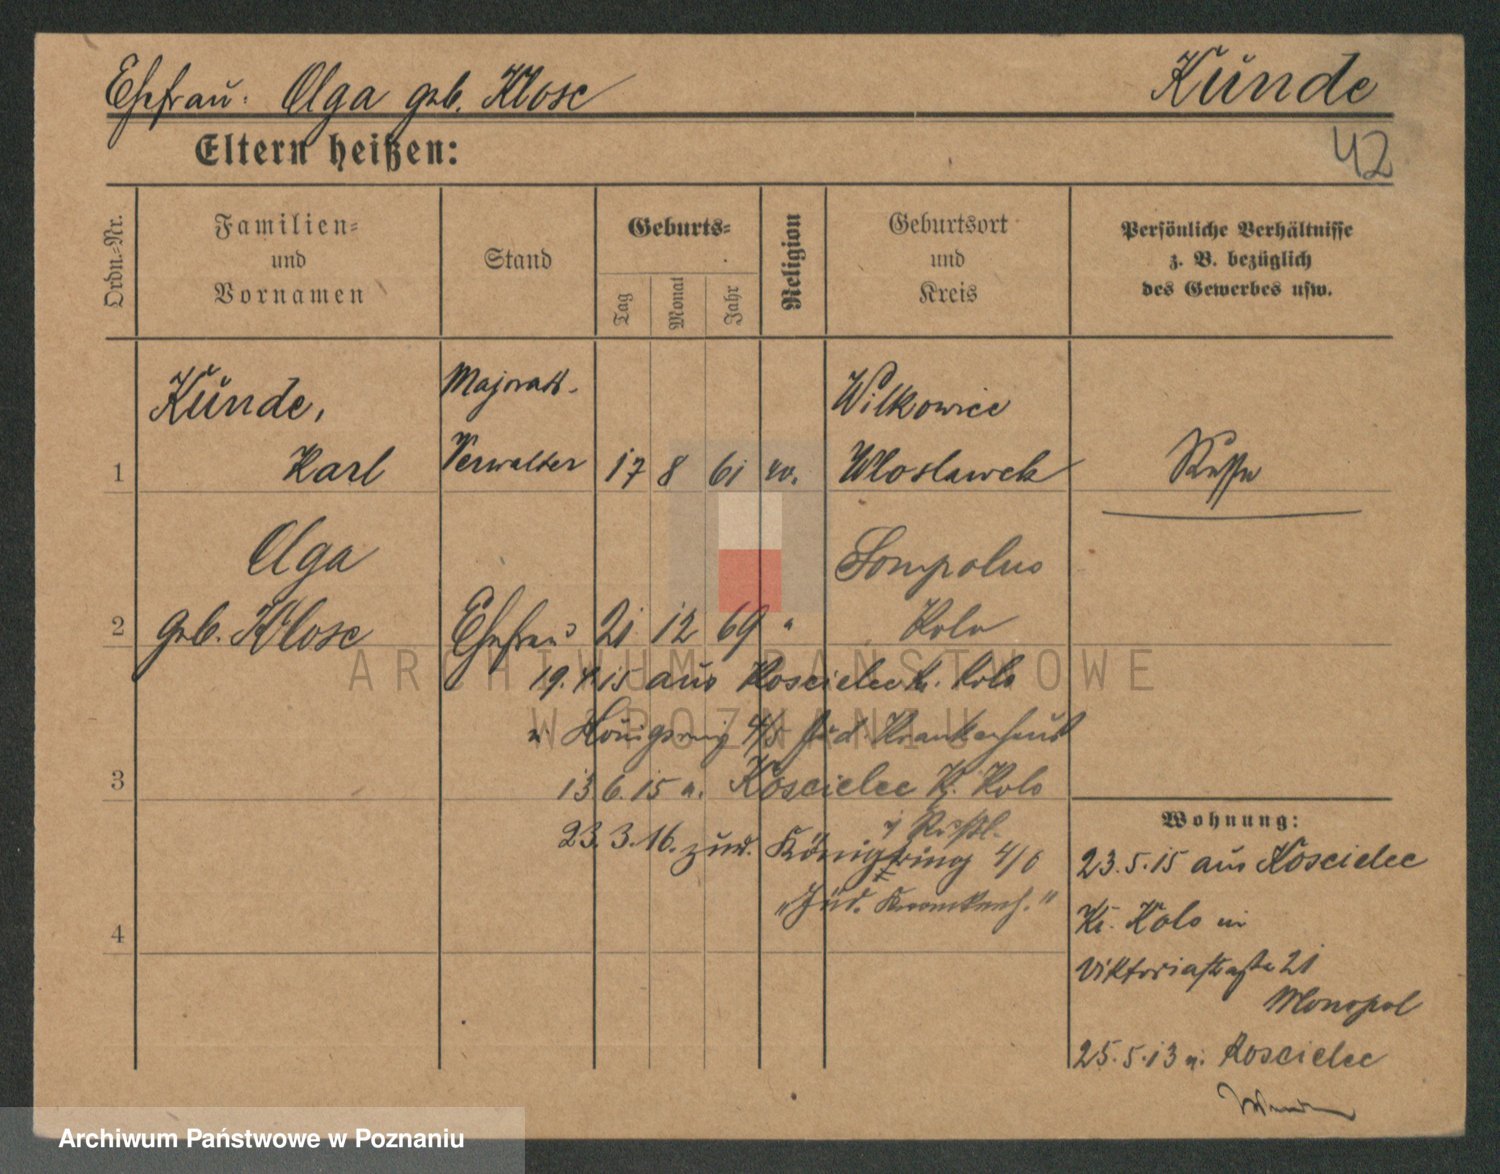 Ehefrau: Olga geb. Klose
Kunde
42
Eltern heißen:
Ordn.-Nr.
Familien- und Vornamen
Stand
Geburts-
Tag
Monat
Jahr
Religion
Geburtsort und Kreis
Persönliche Verhältnisse z. B. bezüglich des Gewerbes usw.
Kunde,
Majorats-
Wilkowice
1 Karl Verwalter 17 8 61 ev. Wloslawek Russe
Olga
Sompolno
2 geb. Klose Ehefrau 21 12 69 " Kolo
19. 4. 15 aus Koscielec Kr. Kolo
n Königsring 4/5 Jüd. Krankenhaus
3
13. 6. 15 n. Koscielec Kr. Kolo
23. 3. 16. zurü. Königsring 4/6
"Jüd. Krankenh."
4
Wohnung:
23. 5. 15 aus Koscielec
Kr. Kolo in
Viktoriastraße 21
Monopol
25. 5. 13 n. Koscielec
ARCHIWUM PAŃSTWOWE
W POZNANIU
Archiwum Państwowe w Poznaniu